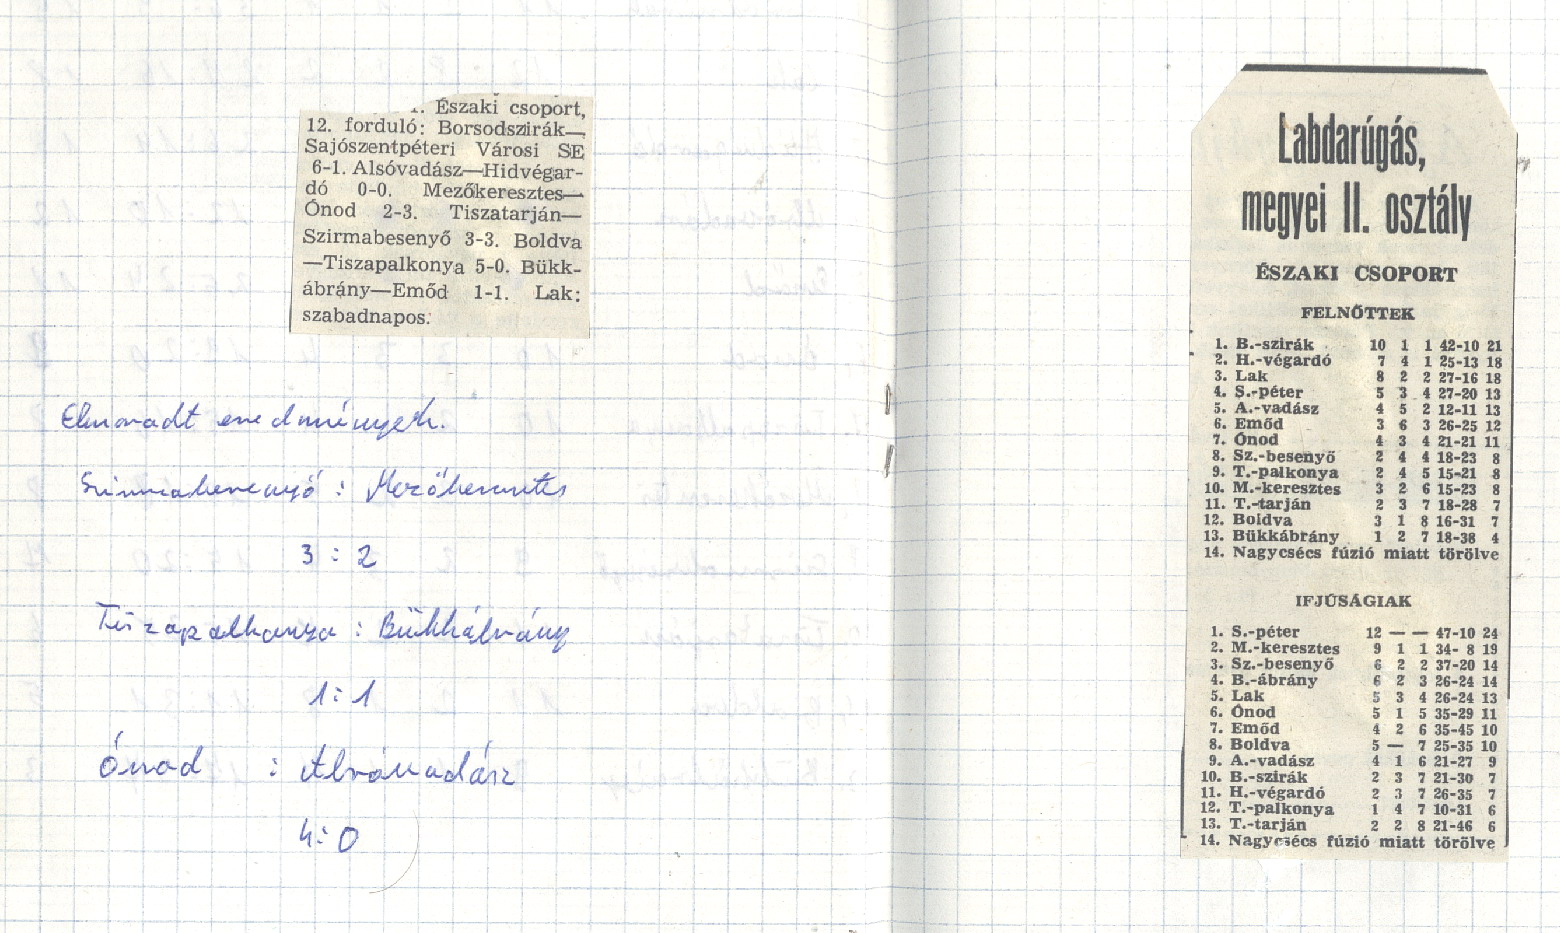 1. Északi csoport,
12. forduló: Borsodszirák—
Sajószentpéteri Városi SE
6-1. Alsóvadász—Hidvégar-
dó 0-0. Mezőkeresztes—
Ónod 2-3. Tiszatarján—
Szirmabesenyő 3-3. Boldva
—Tiszapalkonya 5-0. Bükk-
ábrány—Emőd 1-1. Lak:
szabadnapos.
Elmaradt eredmények.
Szirmabesenyő : Mezőkeresztes
3 : 2
Tiszapalkonya : Bükkábrány
1 : 1
Ónod : Alsóvadász
4 : 0
Labdarúgás,
megyei II. osztály
ÉSZAKI CSOPORT
FELNŐTTEK
1. B.-szirák 10 1 1 42-10 21
2. H.-végardó 7 4 1 25-13 18
3. Lak 8 2 2 27-16 18
4. S.-péter 5 3 4 27-20 13
5. A.-vadász 4 5 2 12-11 13
6. Emőd 3 6 3 26-25 12
7. Ónod 4 3 4 21-21 11
8. Sz.-besenyő 2 4 4 18-23 8
9. T.-palkonya 2 4 5 15-21 8
10. M.-keresztes 3 2 6 15-23 8
11. T.-tarján 2 3 7 18-28 7
12. Boldva 3 1 8 16-31 7
13. Bükkábrány 1 2 7 18-38 4
14. Nagycsécs fúzió miatt törölve
IFJÚSÁGIAK
1. S.-péter 12 — — 47-10 24
2. M.-keresztes 9 1 1 34- 8 19
3. Sz.-besenyő 6 2 2 37-20 14
4. B.-ábrány 6 2 3 26-24 14
5. Lak 5 3 4 26-24 13
6. Ónod 5 1 5 35-29 11
7. Emőd 4 2 6 35-45 10
8. Boldva 5 — 7 25-35 10
9. A.-vadász 4 1 6 21-27 9
10. B.-szirák 2 3 7 21-30 7
11. H.-végardó 2 3 7 26-35 7
12. T.-palkonya 1 4 7 10-31 6
13. T.-tarján 2 2 8 21-46 6
14. Nagycsécs fúzió miatt törölve